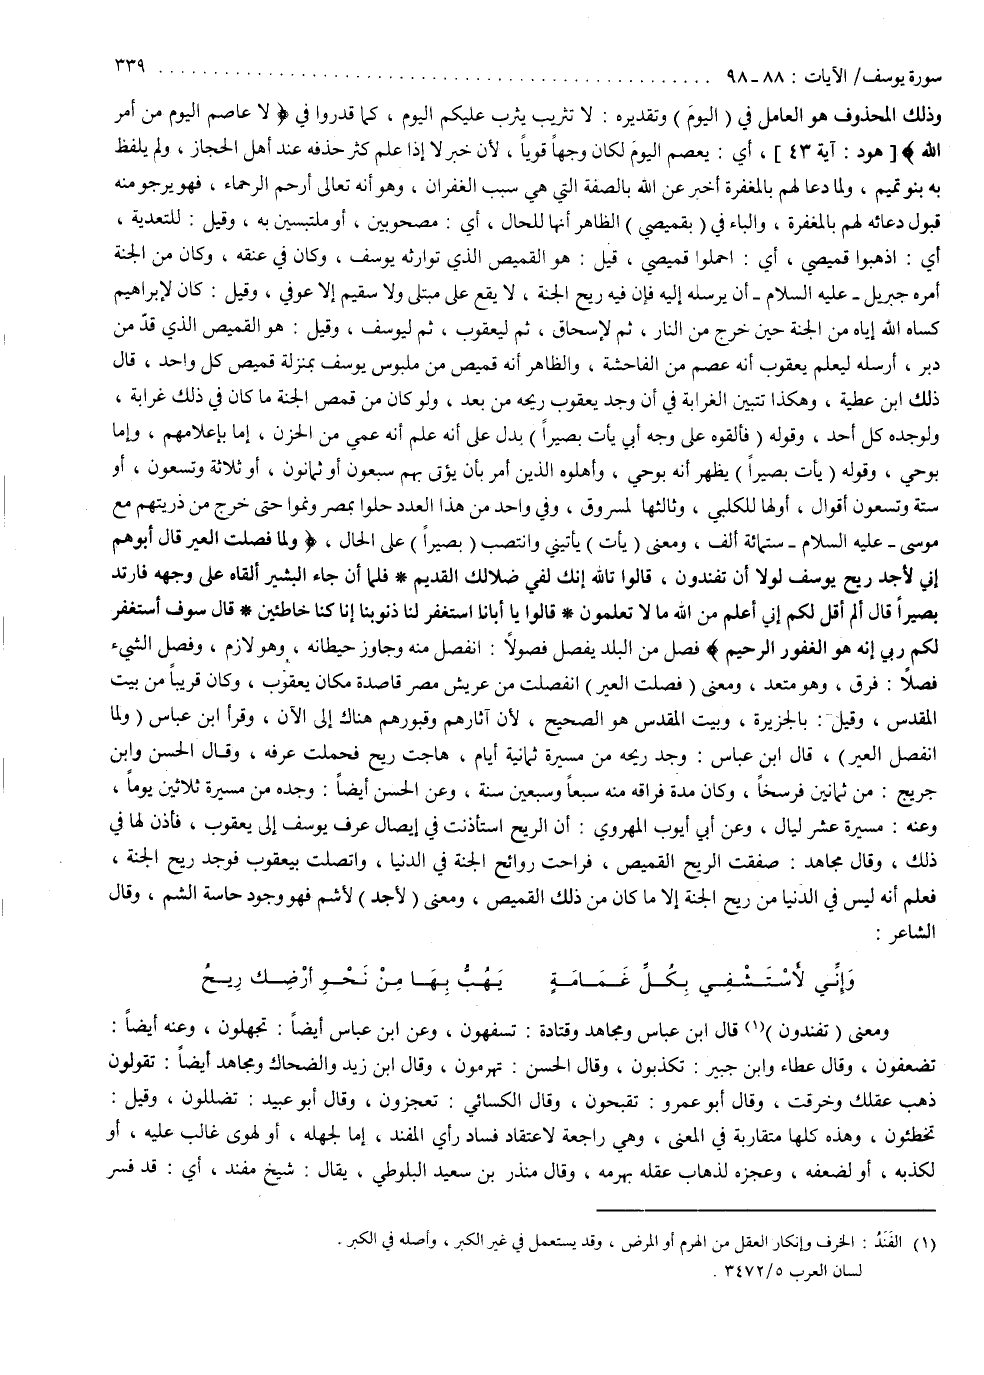 سورة يوسف/ الآيات : ٨٨ ـ ٩٨ ........................................................ ٣٣٩
وذلك المحذوف هو العامل في ( اليومَ ) وتقديره : لا تثريب يثرب عليكم اليوم ، كما قدروا في ﴿ لا عاصم اليوم من أمر
الله ﴾ [ هود : آية ٤٣ ] ، أي : يعصم اليومَ لكان وجهاً قوياً ، لأن خبر لا إذا علم كثر حذفه عند أهل الحجاز ، ولم يلفظ
به بنو تميم ، ولما دعا لهم بالمغفرة أخبر عن الله بالصفة التي هي سبب الغفران ، وهو أنه تعالى أرحم الرحماء ، فهو يرجو منه
قبول دعائه لهم بالمغفرة ، والباء في ( بقميصي ) الظاهر أنها للحال ، أي : مصحوبين ، أو ملتبسين به ، وقيل : للتعدية ،
أي : اذهبوا قميصي ، أي : احملوا قميصي ، قيل : هو القميص الذي توارثه يوسف ، وكان في عنقه ، وكان من الجنة
أمره جبريل ـ عليه السلام ـ أن يرسله إليه فإن فيه ريح الجنة ، لا يقع على مبتلى ولا سقيم إلا عوفي ، وقيل : كان لإبراهيم
كساه الله إياه من الجنة حين خرج من النار ، ثم لإسحاق ، ثم ليعقوب ، ثم ليوسف ، وقيل : هو القميص الذي قدّ من
دبر ، أرسله ليعلم يعقوب أنه عصم من الفاحشة ، والظاهر أنه قميص من ملبوس يوسف بمنزلة قميص كل واحد ، قال
ذلك ابن عطية ، وهكذا تتبين الغرابة في أن وجد يعقوب ريحه من بعد ، ولو كان من قمص الجنة ما كان في ذلك غرابة ،
ولوجده كل أحد ، وقوله ( فألقوه على وجه أبي يأت بصيراً ) يدل على أنه علم أنه عمي من الحزن ، إما بإعلامهم ، وإما
بوحي ، وقوله ( يأت بصيراً ) يظهر أنه بوحي ، وأهلوه الذين أمر بأن يؤتى بهم سبعون أو ثمانون ، أو ثلاثة وتسعون ، أو
ستة وتسعون أقوال ، أولها للكلبي ، وثالثها لمسروق ، وفي واحد من هذا العدد حلوا بمصر ونموا حتى خرج من ذريتهم مع
موسى ـ عليه السلام ـ ستمائة ألف ، ومعنى ( يأت ) يأتيني وانتصب ( بصيراً ) على الحال ، ﴿ ولما فصلت العير قال أبوهم
إني لأجد ريح يوسف لولا أن تفندون ، قالوا تالله إنك لفي ضلالك القديم * فلما أن جاء البشير ألقاه على وجهه فارتد
بصيراً قال ألم أقل لكم إني أعلم من الله ما لا تعلمون * قالوا يا أبانا استغفر لنا ذنوبنا إنا كنا خاطئين * قال سوف أستغفر
لكم ربي إنه هو الغفور الرحيم ﴾ فصل من البلد يفصل فصولاً : انفصل منه وجاوز حيطانه ، وهو لازم ، وفصل الشيء
فصلاً : فرق ، وهو متعد ، ومعنى ( فصلت العير ) انفصلت من عريش مصر قاصدة مكان يعقوب ، وكان قريباً من بيت
المقدس ، وقيل : بالجزيرة ، وبيت المقدس هو الصحيح ، لأن آثارهم وقبورهم هناك إلى الآن ، وقرأ ابن عباس ( ولما
انفصل العير ) ، قال ابن عباس : وجد ريحه من مسيرة ثمانية أيام ، هاجت ريح فحملت عرفه ، وقال الحسن وابن
جريج : من ثمانين فرسخاً ، وكان مدة فراقه منه سبعاً وسبعين سنة ، وعن الحسن أيضاً : وجده من مسيرة ثلاثين يوماً ،
وعنه : مسيرة عشر ليال ، وعن أبي أيوب المهروي : أن الريح استأذنت في إيصال عرف يوسف إلى يعقوب ، فأذن لها في
ذلك ، وقال مجاهد : صفقت الريح القميص ، فراحت روائح الجنة في الدنيا ، واتصلت بيعقوب فوجد ريح الجنة ،
فعلم أنه ليس في الدنيا من ريح الجنة إلا ما كان من ذلك القميص ، ومعنى ( لأجد ) لأشم فهو وجود حاسة الشم ، وقال
الشاعر :
وَإِنِّي لَأَسْتَشْفِي بِكُلِّ غَمَامَةٍ يَهُبُّ بِهَا مِنْ نَحْوِ أَرْضِكِ رِيحُ
ومعنى ( تفندون )(١) قال ابن عباس ومجاهد وقتادة : تسفهون ، وعن ابن عباس أيضاً : تجهلون ، وعنه أيضاً :
تضعفون ، وقال عطاء وابن جبير : تكذبون ، وقال الحسن : تهرمون ، وقال ابن زيد والضحاك ومجاهد أيضاً : تقولون
ذهب عقلك وخرفت ، وقال أبو عمرو : تقبحون ، وقال الكسائي : تعجزون ، وقال أبو عبيد : تضللون ، وقيل :
تخطئون ، وهذه كلها متقاربة في المعنى ، وهي راجعة لاعتقاد فساد رأي المفند ، إما لجهله ، أو لهوى غالب عليه ، أو
لكذبه ، أو لضعفه ، وعجزه لذهاب عقله بهرمه ، وقال منذر بن سعيد البلوطي ، يقال : شيخ مفند ، أي : قد فسر
(١) الفَنَدُ : الخرف وإنكار العقل من الهرم أو المرض ، وقد يستعمل في غير الكبر ، وأصله في الكبر .
لسان العرب ٣٤٧٢/٥ .